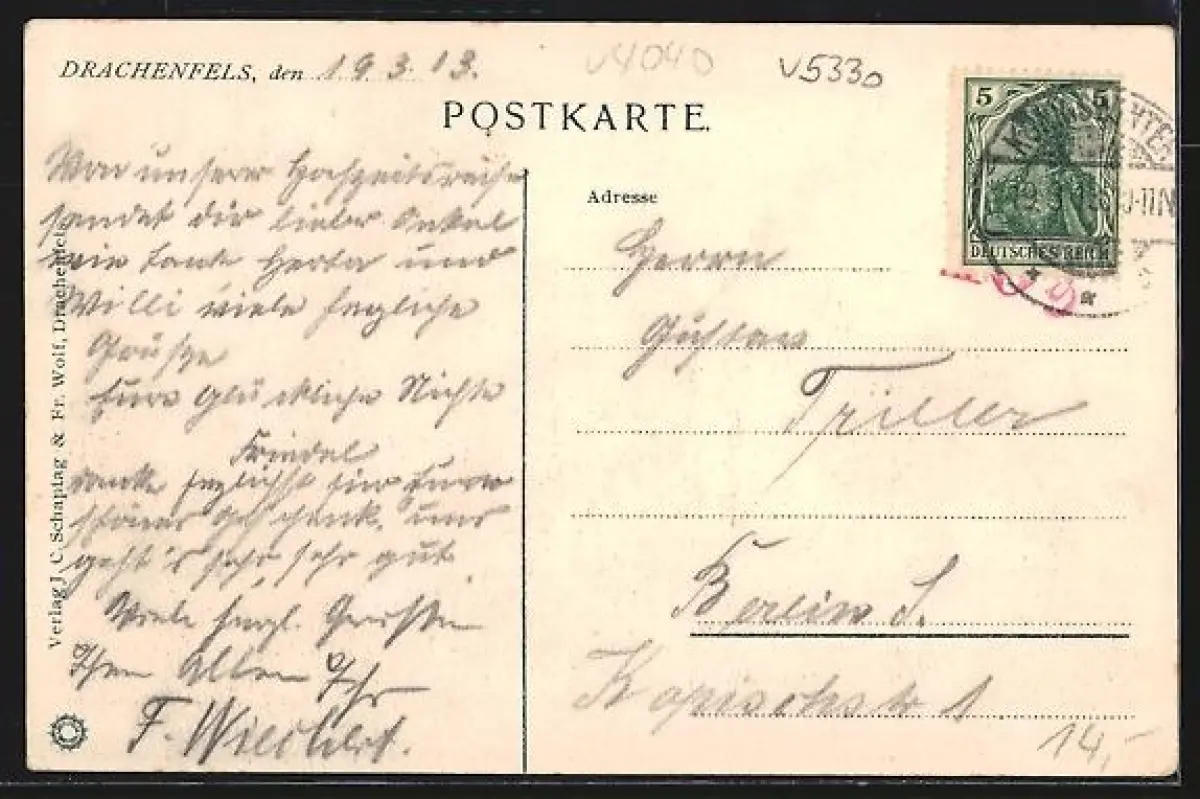 DRACHENFELS, den 19.3.13.
V4040
V5330
POSTKARTE.
Von unserer Hochzeitsreise
sendet dir lieber Onkel
wie Tante Herta und
Willi viele herzliche
Grüße
Eure glückliche Nichte
Friedel
danke herzlichst für Eure
schönes Geschenk, uns
geht's sehr, sehr gut
Viele herzl. Grüße
Ihnen Allen Ihr
F. Wiechert.
Verlag J. C. Schaptag & Fr. Wolf, Drachenfels
5 5
DEUTSCHES REICH
Adresse
Herrn
Gustav
Triller
Berlin S.
Kopischstr 1
14,-